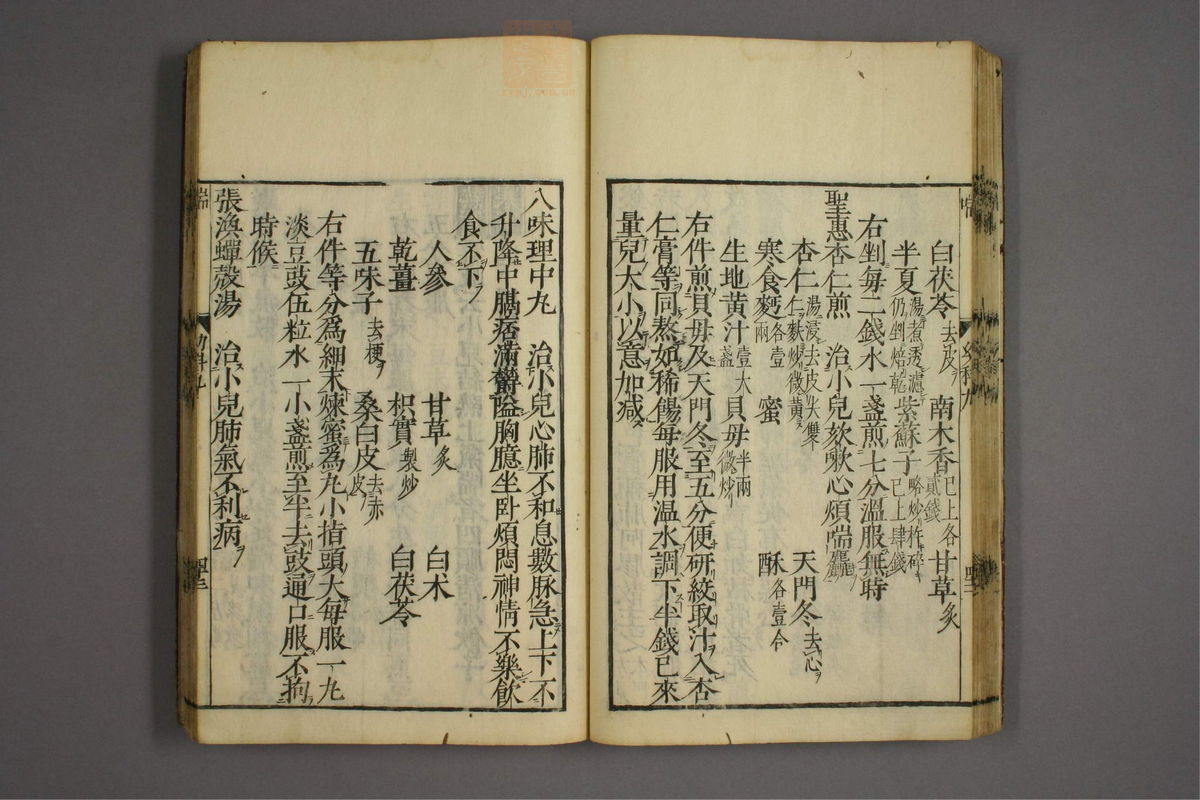 白茯苓去皮 南木香已上各貳錢 甘草炙
半夏湯煮透濾仍剉焙乾 紫蘇子略炒杵碎已上肆錢
右剉每二錢水一盞煎七分溫服無時
聖惠杏仁煎 治小兒欬嗽心煩喘麤
杏仁湯浸去皮尖雙仁麩炒微黃 天門冬去心
寒食麪各壹兩 蜜 酥各壹合
生地黃汁壹大盞 貝母半兩微炒
右件煎貝母及天門冬至五分便研絞取汁入杏
仁膏等同熬如稀餳每服用溫水調下半錢已來
量兒大小以意加減
八味理中丸 治小兒心肺不和息數脉急上下不
升降中膈痞滿鬱隘胸臆坐卧煩悶神情不樂飲
食不下
人參 甘草炙 白朮
乾薑 枳實製炒 白茯苓
五味子去梗 桑白皮去赤皮
右件等分為細末煉蜜為丸小指頭大每服一丸
淡豆豉伍粒水一小盞煎至半去豉通口服不拘
時候
張渙蟬殼湯 治小兒肺氣不利病